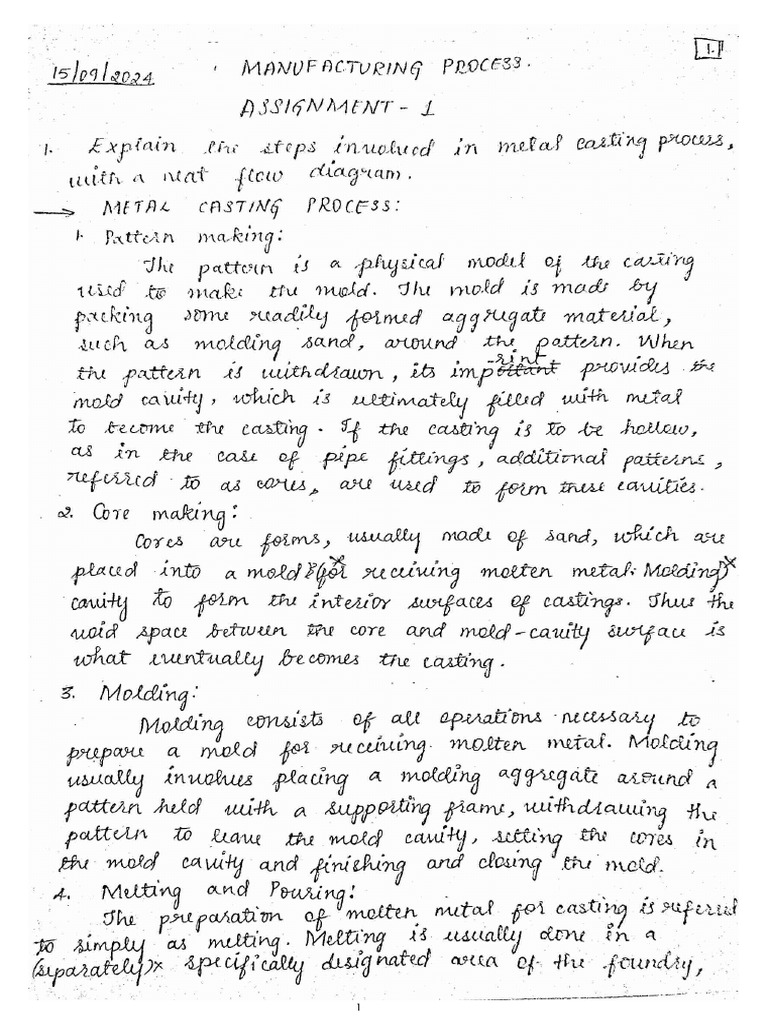 1.
15/09/2024 MANUFACTURING PROCESS.
ASSIGNMENT - 1
1. Explain the steps involved in metal casting process,
with a neat flow diagram.
→ METAL CASTING PROCESS:
1. Pattern making:
The pattern is a physical model of the casting
used to make the mold. The mold is made by
packing some readily formed aggregate material,
such as molding sand, around the pattern. When
the pattern is withdrawn, its imprint provides the
mold cavity, which is ultimately filled with metal
to become the casting. If the casting is to be hollow,
as in the case of pipe fittings, additional patterns,
referred to as cores, are used to form these cavities.
2. Core making:
Cores are forms, usually made of sand, which are
placed into a mold (for receiving molten metal. Molding)
cavity to form the interior surfaces of castings. Thus the
void space between the core and mold-cavity surface is
what eventually becomes the casting.
3. Molding:
Molding consists of all operations necessary to
prepare a mold for receiving molten metal. Molding
usually involves placing a molding aggregate around a
pattern held with a supporting frame, withdrawing the
pattern to leave the mold cavity, setting the cores in
the mold cavity and finishing and closing the mold.
4. Melting and Pouring:
The preparation of molten metal for casting is referred
to simply as melting. Melting is usually done in a
(separately)x specifically designated area of the foundry,
1